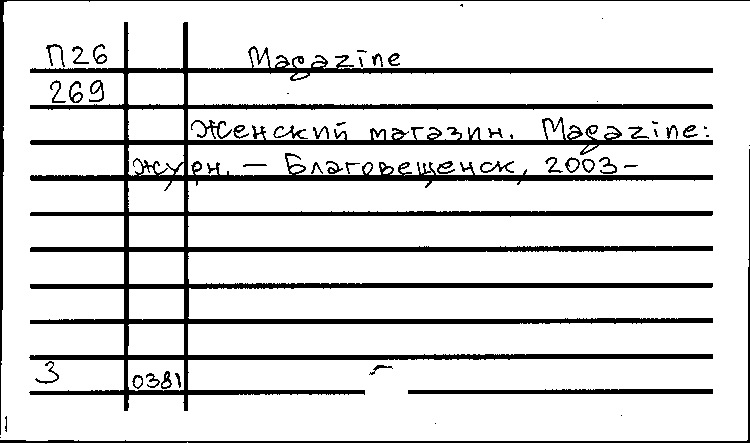 П26 Magazine
269
Женский магазин. Magazine:
журн. — Благовещенск, 2003-
3 0381